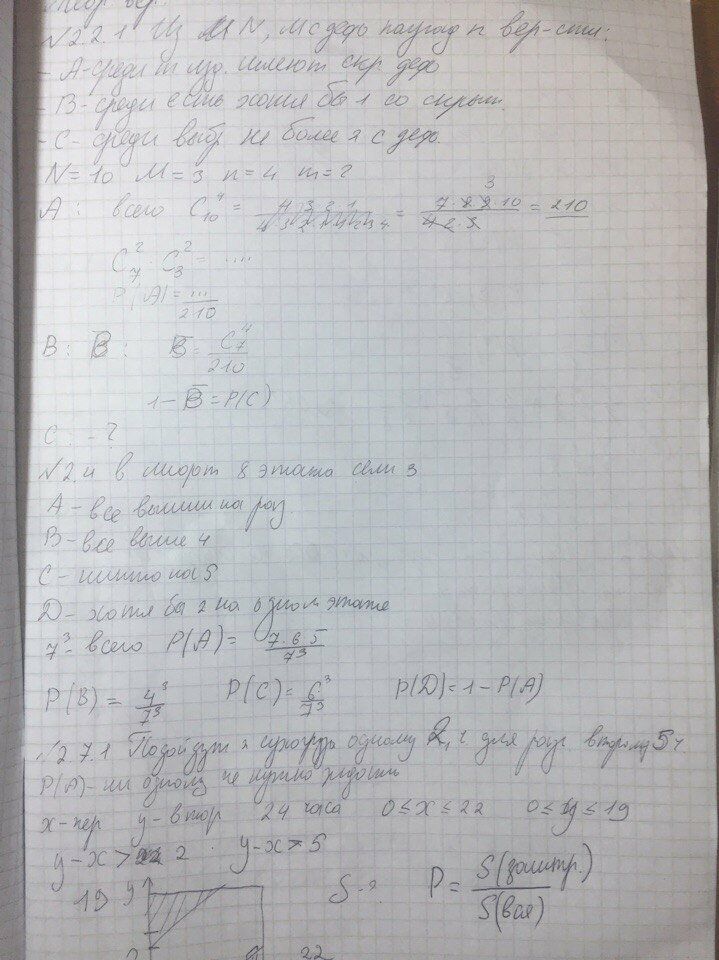 Теор. вер.
№2.2.1 Из N, M с деф наугад n вер-сти:
- A - среди m изд. имеют скр. деф
- B - среди есть хотя бы 1 со скрыт.
- C - среди выбр не более с деф.
N = 10 M = 3 n = 4 m = 2
A: всего C₁₀⁴ = = 7·8·9·10 / 4·2·3 = 210
3
C₇² · C₃² = ....
P(A) = .../210
B: B̅: B̅ = C₇⁴/210
1 - B̅ = P(C)
C: - ?
№2.4 в лифт 8 этажа сели 3
A - все вышли на раз
B - все выше 4
C - никто на 5
D - хотя бы 2 на одном этаже
7³ - всего P(A) = 7·6·5/7³
P(B) = 4³/7³ P(C) = 6³/7³ P(D) = 1 - P(A)
№2.7.1 Подойдут 2 сухогруза одному 2 ч для разг второму 5 ч
P(A) - ни одному не нужно ждать
x - пер y - втор 24 часа 0 ≤ x ≤ 22 0 ≤ y ≤ 19
y - x > 2 y - x > 5
19 y S - ? P = S(заштр.)/S(вся)
22